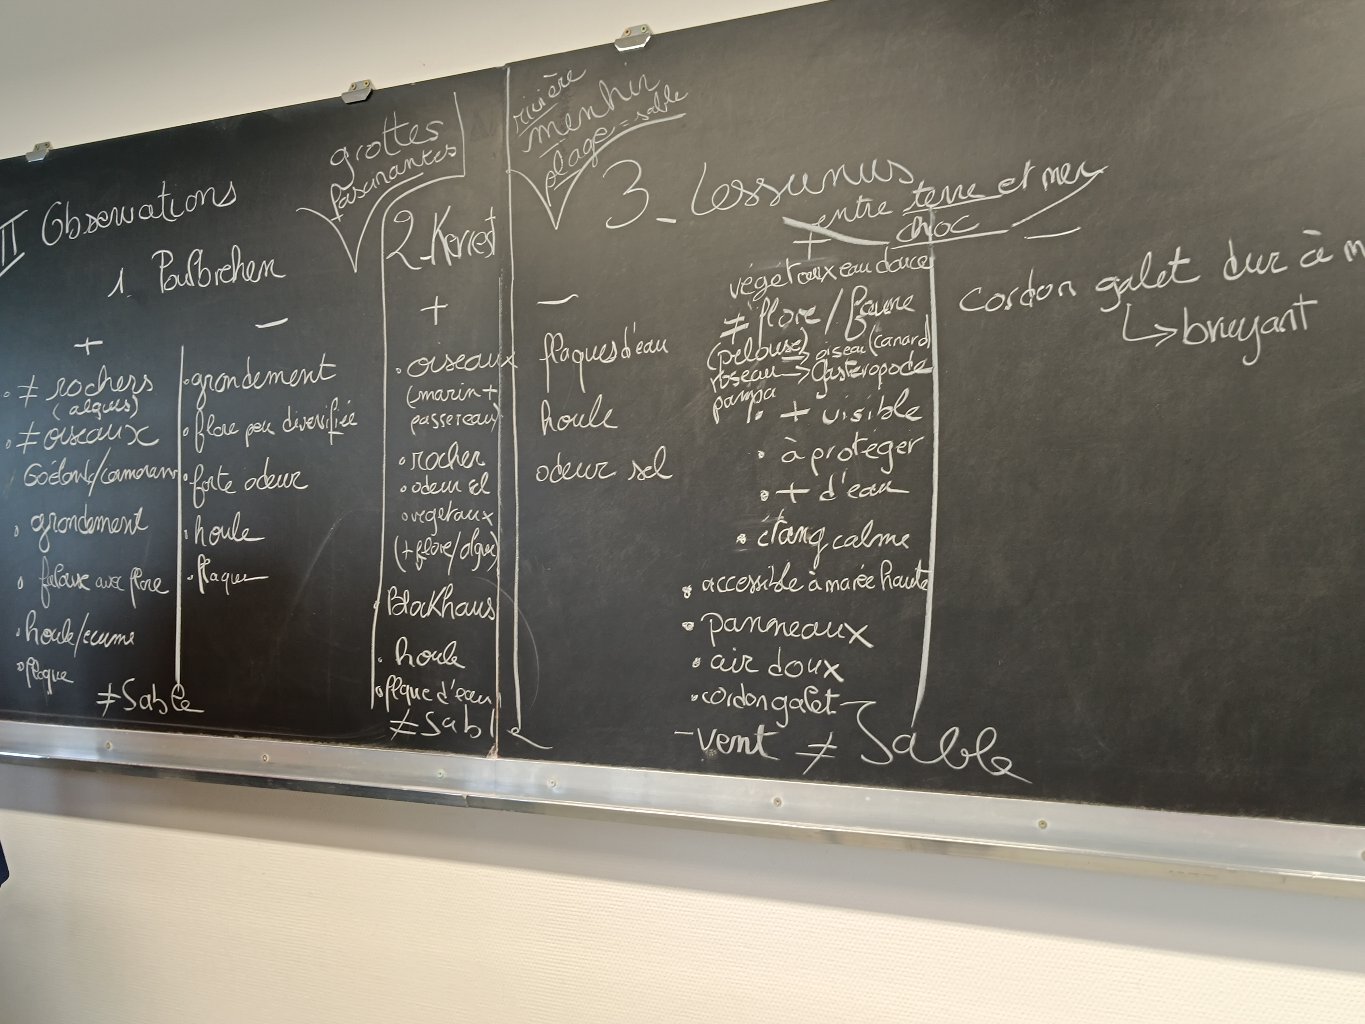 II Observations
1. Poulbrehen
+
• ≠ rochers
(algues)
• ≠ oiseaux
Goéland/cormoran
• grondement
• falaise avec flore
• houle/écume
• flaque
≠ Sable
—
• grondement
• flore peu diversifiée
• forte odeur
• houle
• flaque
grottes
fascinantes
2_Kerrest
+
• oiseaux
(marin +
passereaux
• rocher
• odeur sel
• végétaux
(+ flore/algue)
Blockhaus
• houle
• flaque d'eau
≠ Sable
—
flaques d'eau
houle
odeur sel
rivière
menhir
plage = sable
3_ Lessunus
entre terre et mer
choc
+
végétaux eau douce
≠ flore/faune
(pelouse) → oiseau (canard)
roseau → Gastéropode
pampa
• + visible
• à protéger
• + d'eau
• étang calme
• accessible à marée haute
• panneaux
• air doux
• cordon galet
- vent ≠ Sable
—
cordon galet dur à m
↳ bruyant